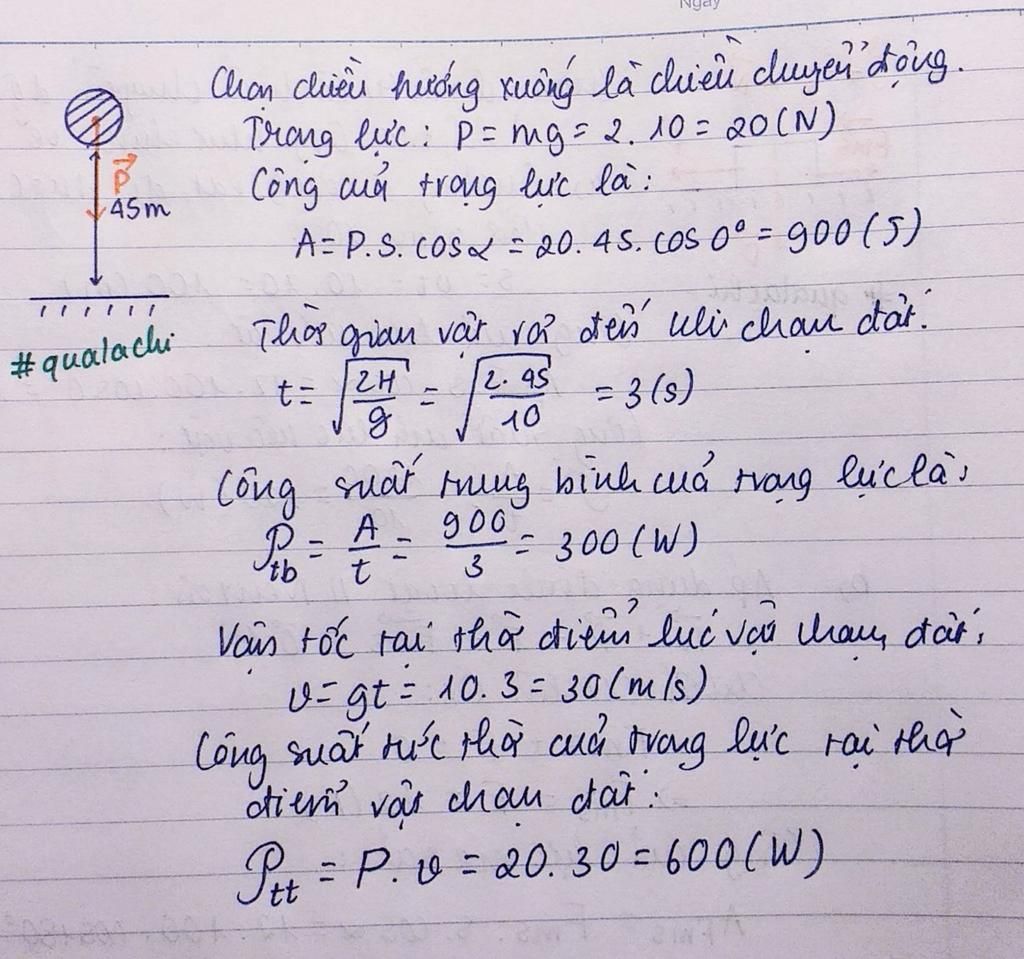 Ngày
Chọn chiều hướng xuống là chiều chuyển động.
Trọng lực: P = mg = 2.10 = 20 (N)
P
45m
Công cuả trọng lực là:
A = P.S.cosα = 20.45.cos 0° = 900 (J)
#qualachi
Thời gian vật rơi đến khi chạm đất:
t = √(2H/g) = √(2.45/10) = 3 (s)
Công suất trung bình cuả trọng lực là:
𝒫tb = A/t = 900/3 = 300 (W)
Vận tốc tại thời điểm lúc vật chạm đất:
v = gt = 10.3 = 30 (m/s)
Công suất tức thời cuả trọng lực tại thời
điểm vật chạm đất:
𝒫tt = P.v = 20.30 = 600 (W)